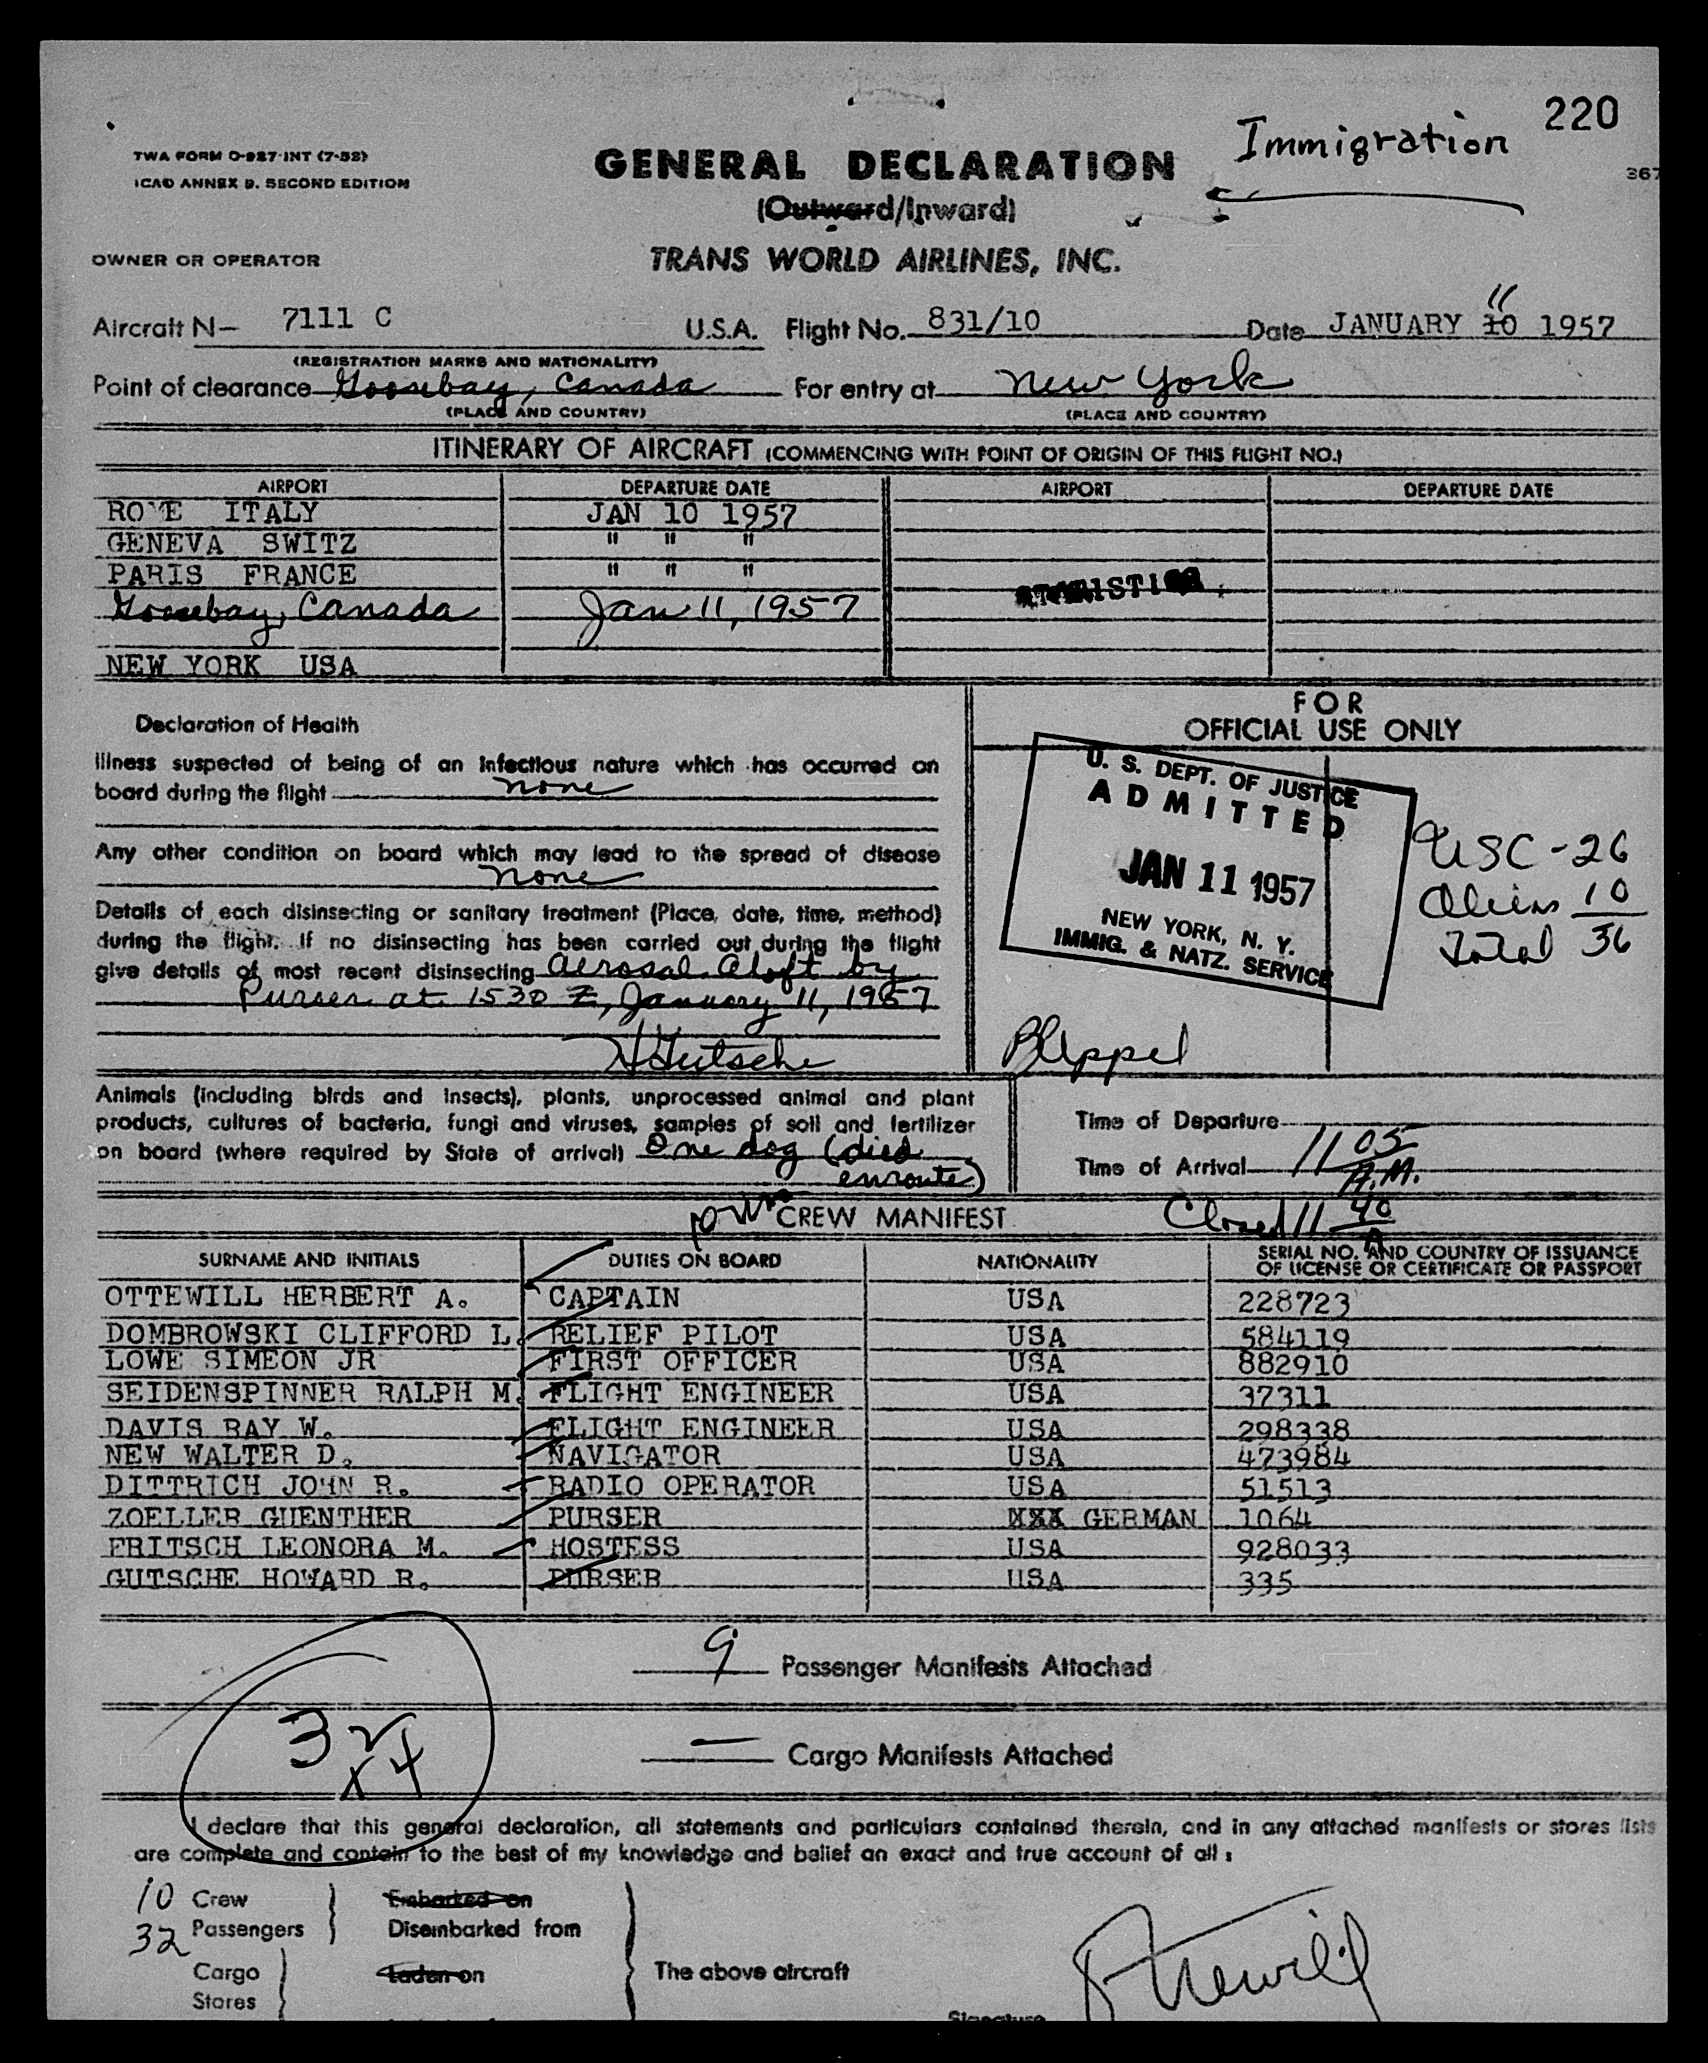 220
Immigration
TWA FORM O-927-INT (7-52)
ICAO ANNEX 9. SECOND EDITION
367
GENERAL DECLARATION
(Outward/Inward)
OWNER OR OPERATOR
TRANS WORLD AIRLINES, INC.
Aircraft N- 7111 C U.S.A. Flight No. 831/10 Date JANUARY 10 11 1957
(REGISTRATION MARKS AND NATIONALITY)
Point of clearance Goosebay, Canada For entry at New York
(PLACE AND COUNTRY) (PLACE AND COUNTRY)
ITINERARY OF AIRCRAFT (COMMENCING WITH POINT OF ORIGIN OF THIS FLIGHT NO.)
AIRPORT DEPARTURE DATE AIRPORT DEPARTURE DATE
ROME ITALY JAN 10 1957
GENEVA SWITZ " " "
PARIS FRANCE " " "
Goosebay, Canada Jan 11, 1957
NEW YORK USA
Declaration of Health
Illness suspected of being of an infectious nature which has occurred on
board during the flight none
Any other condition on board which may lead to the spread of disease
none
Details of each disinsecting or sanitary treatment (Place, date, time, method)
during the flight. If no disinsecting has been carried out during the flight
give details of most recent disinsecting aerosal aloft by
Purser at 1530 Z, January 11, 1957
HGutsche
FOR
OFFICIAL USE ONLY
U. S. DEPT. OF JUSTICE
ADMITTED
JAN 11 1957
NEW YORK, N. Y.
IMMIG. & NATZ. SERVICE
USC - 26
Aliens 10
Total 36
Animals (including birds and insects), plants, unprocessed animal and plant
products, cultures of bacteria, fungi and viruses, samples of soil and fertilizer
on board (where required by State of arrival) One dog (died
enroute)
Time of Departure
Time of Arrival 11 05 A.M.
CREW MANIFEST
Closed 11 40 A
SURNAME AND INITIALS DUTIES ON BOARD NATIONALITY SERIAL NO. AND COUNTRY OF ISSUANCE
OF LICENSE OR CERTIFICATE OR PASSPORT
OTTEWILL HERBERT A. CAPTAIN USA 228723
DOMBROWSKI CLIFFORD L. RELIEF PILOT USA 584119
LOWE SIMEON JR FIRST OFFICER USA 882910
SEIDENSPINNER RALPH M. FLIGHT ENGINEER USA 37311
DAVIS RAY W. FLIGHT ENGINEER USA 298338
NEW WALTER D. NAVIGATOR USA 473984
DITTRICH JOHN R. RADIO OPERATOR USA 51513
ZOELLER GUENTHER PURSER XXX GERMAN 1064
FRITSCH LEONORA M. HOSTESS USA 928033
GUTSCHE HOWARD R. PURSER USA 335
9 Passenger Manifests Attached
— Cargo Manifests Attached
I declare that this general declaration, all statements and particulars contained therein, and in any attached manifests or stores lists
are complete and contain to the best of my knowledge and belief an exact and true account of all :
10 Crew Embarked on
32 Passengers Disembarked from
Cargo Laden on The above aircraft
Stores
Signature